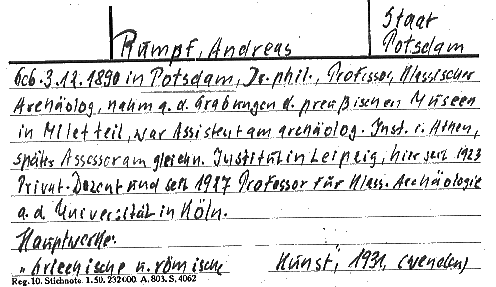 Staat
Rumpf, Andreas Potsdam
Geb. 3.12.1890 in Potsdam, Dr. phil., Professor, Klassischer
Archäolog, nahm a. d. Grabungen d. preußischen Museen
in Milet teil, war Assistent am archäolog. Inst. i. Athen,
später Assessor am gleichn. Institut in Leipzig, hier seit 1923
Privat-Dozent und seit 1927 Professor für Klass. Archäologie
a. d. Universität in Köln.
Hauptwerke:
„Griechische u. römische Kunst", 1931, (wenden)
Reg. 10. Stichnote. 1. 50. 232000. A. 803. S. 4062